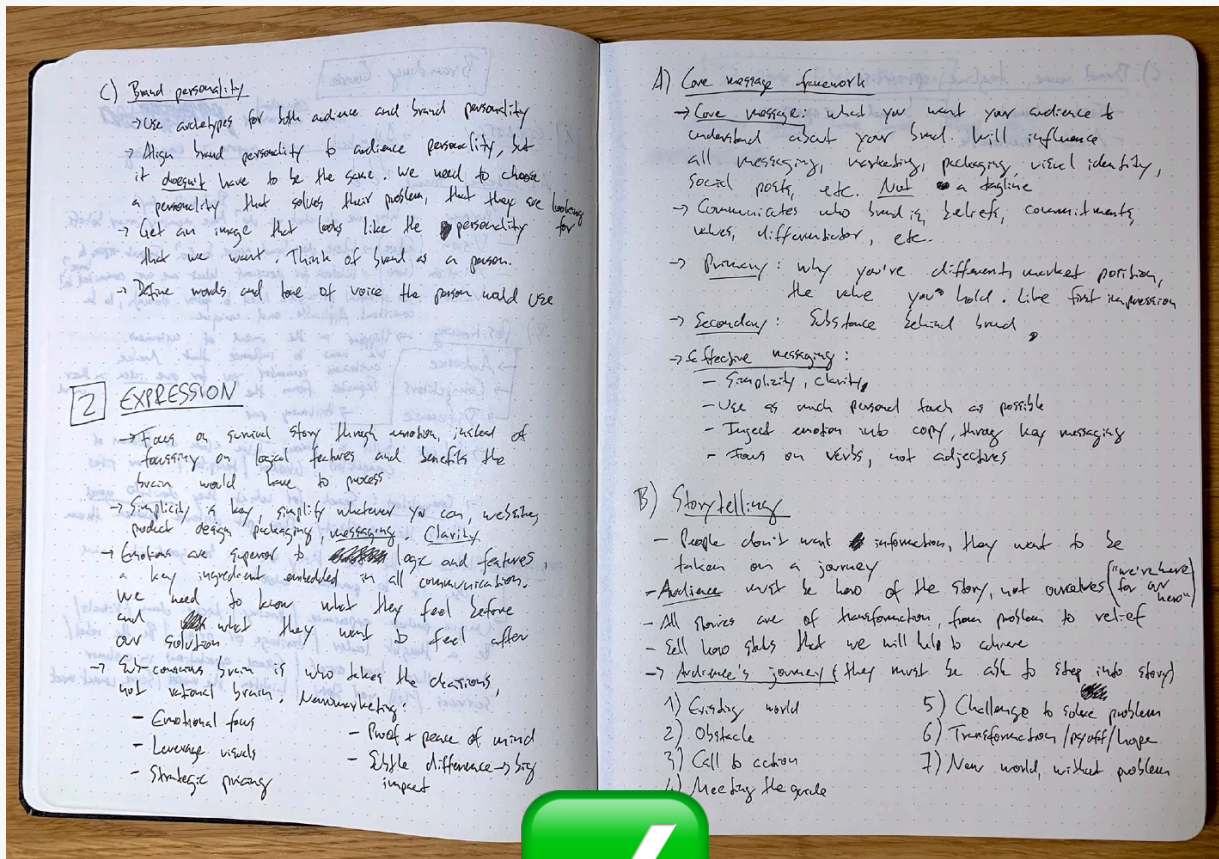 C) Brand personality
→ Use archetypes for both audience and brand personality
→ Align brand personality to audience personality, but
it doesn't have to be the same. We need to choose
a personality that solves their problem, that they are looking
for
→ Get an image that looks like the personality
that we want. Think of brand as a person.
→ Define words and tone of voice the person would use
2 EXPRESSION
→ Focus on survival story through emotion, instead of
focussing on logical features and benefits the
brain would have to process
→ Simplicity is key, simplify whatever you can, websites,
product design, packaging, messaging. Clarity
→ Emotions are superior to logic and features,
a key ingredient embedded in all communication.
We need to know what they feel before
and what they want to feel after
our solution
→ Sub-conscious brain is who takes the decisions,
not rational brain. Neuromarketing:
- Emotional focus
- Leverage visuals
- Strategic pricing
- Proof + peace of mind
- Subtle difference → big
impact
A) Core message framework
→ Core message: what you want your audience to
understand about your brand. Will influence
all messaging, marketing, packaging, visual identity,
social posts, etc. Not a tagline
→ Communicates who brand is, beliefs, commitments,
values, differentiator, etc.
→ Primary: why you're different, market position,
the value you hold. Like first impression
→ Secondary: Substance behind brand
→ Effective messaging:
- Simplicity, clarity
- Use as much personal touch as possible
- Inject emotion into copy, throug key messaging
- Focus on verbs, not adjectives
B) Storytelling
- People don't want information, they want to be
taken on a journey
- Audience must be hero of the story, not ourselves ("we're here
for our
hero")
- All stories are of transformation, from problem to relief
- Sell hero status that we will help to achieve
→ Audience's journey (they must be ask to step into story)
1) Existing world
2) Obstacle
3) Call to action
4) Meeting the guide
5) Challenge to solve problem
6) Transformation/payoff/hope
7) New world, without problem